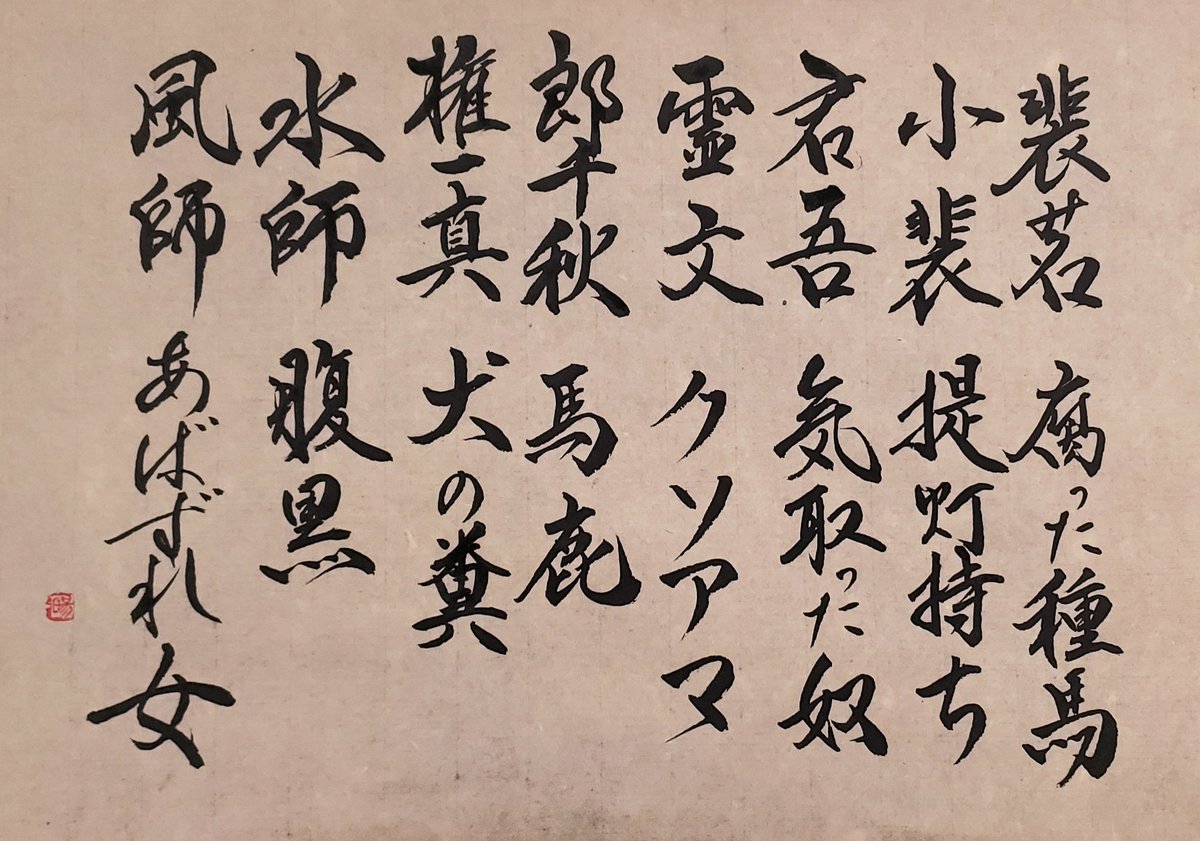 裴茗 腐った種馬
小裴 提灯持ち
君吾 気取った奴
霊文 クソアマ
郎千秋 馬鹿
権一真 犬の糞
水師 腹黒
風師 あばずれ女